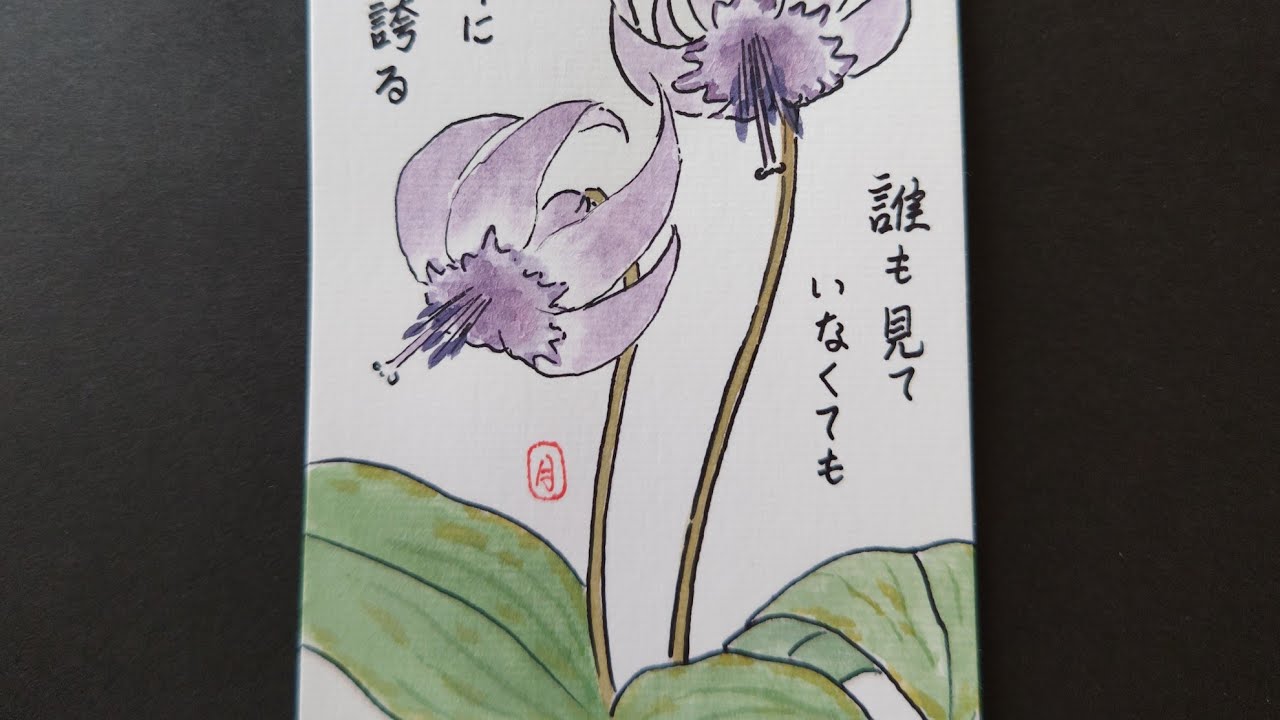 誰も見て
いなくても
に
誇る
月